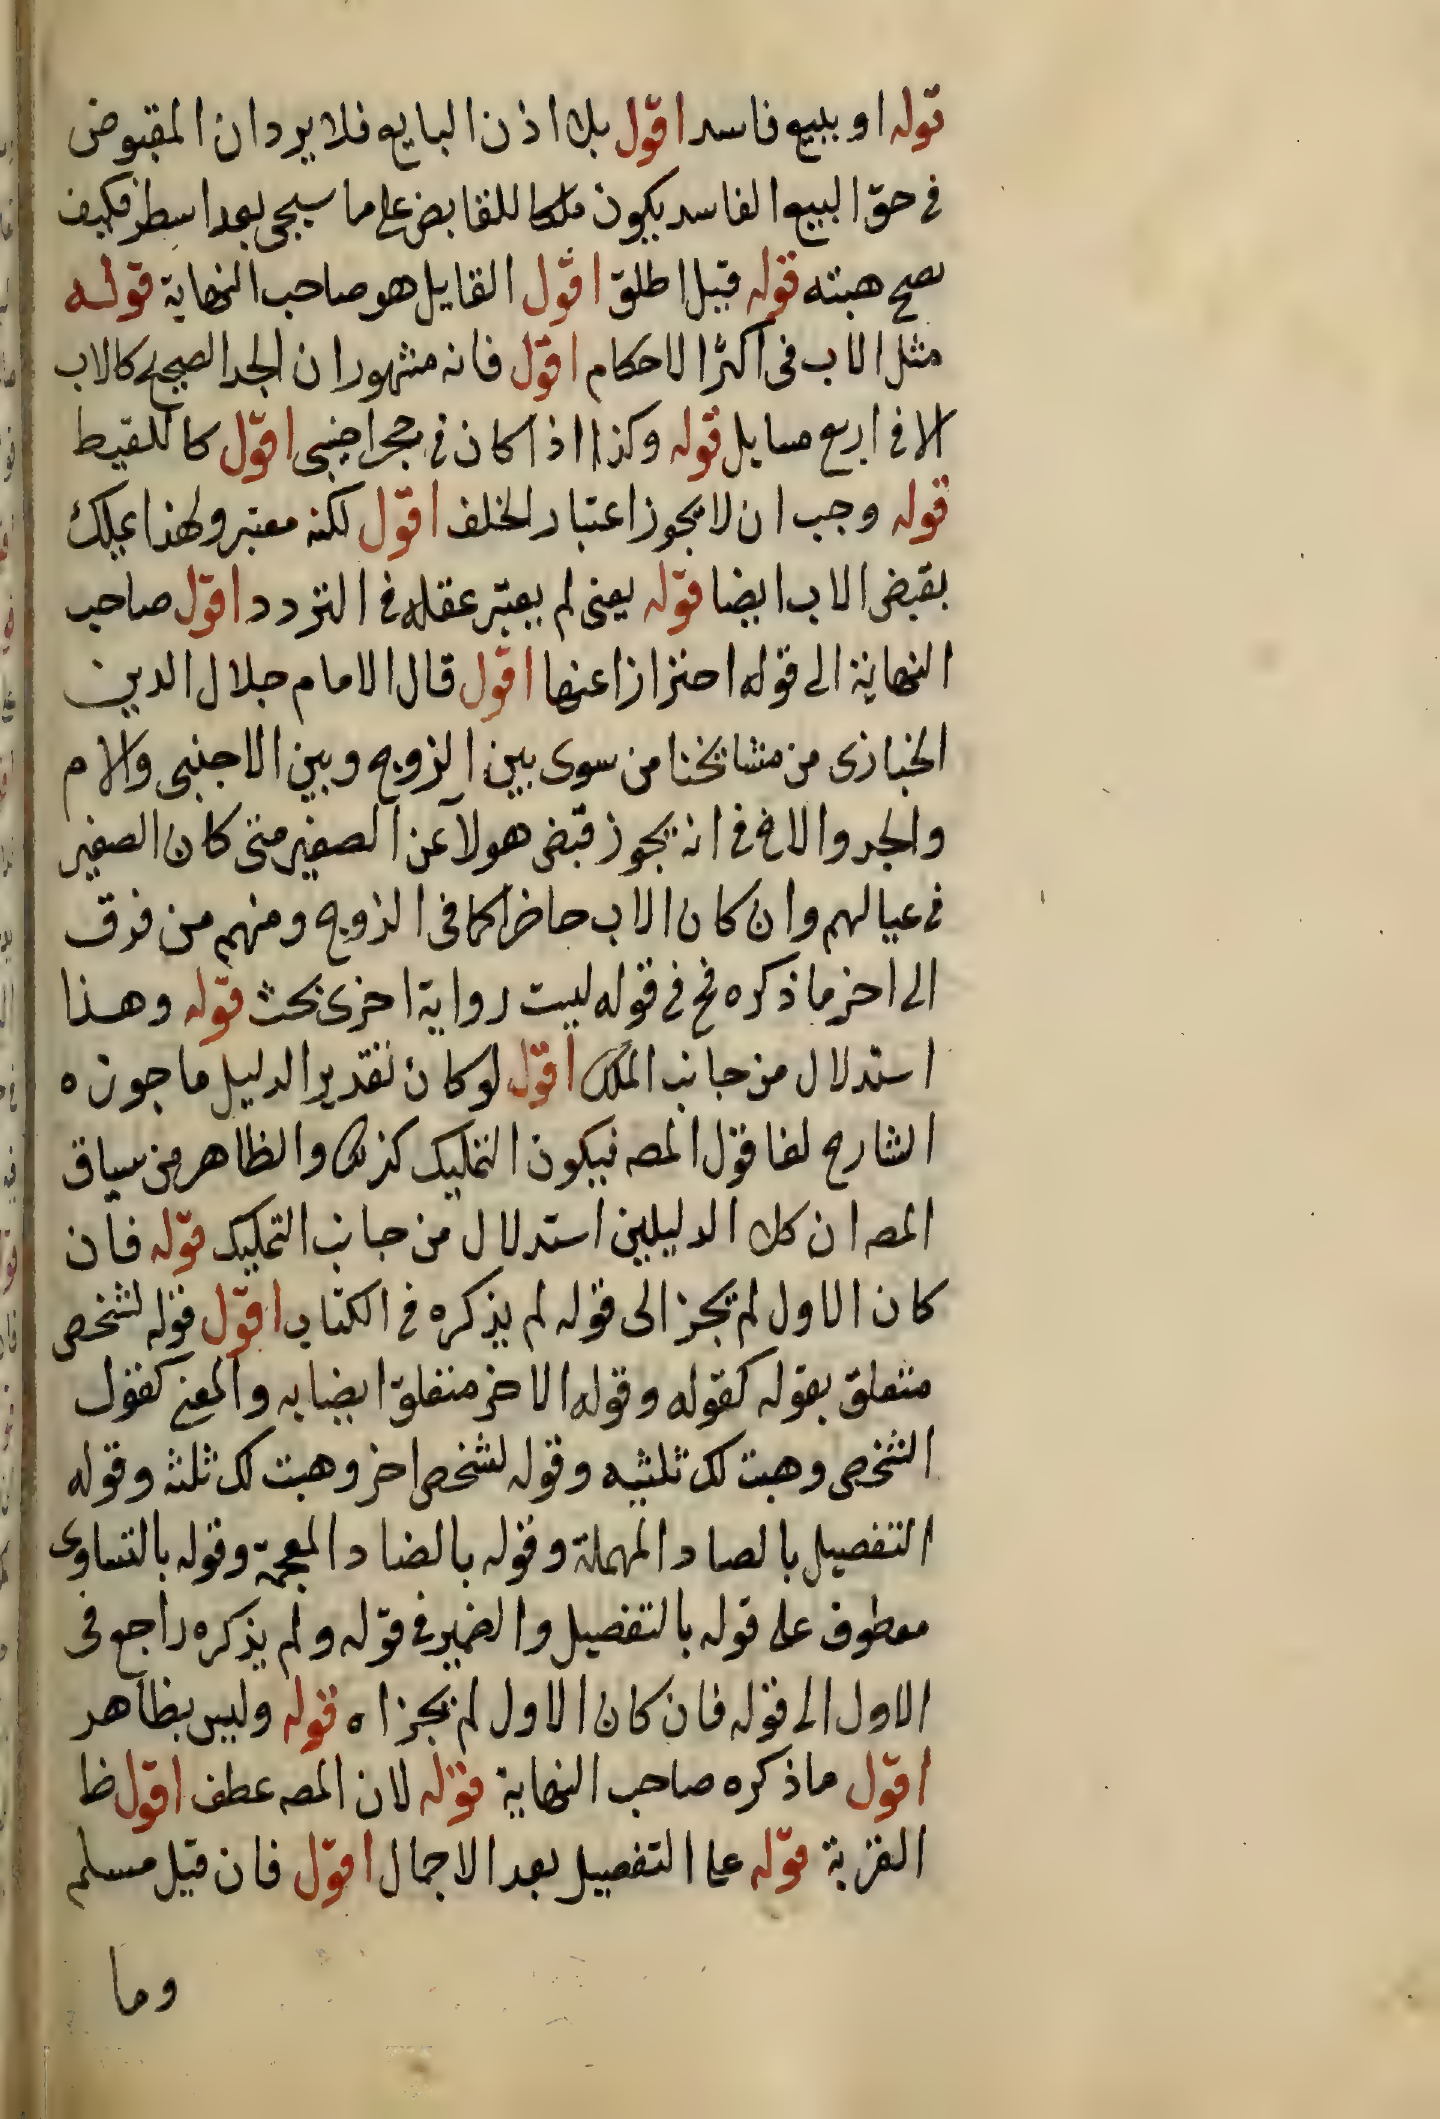 قوله او ببيع فاسد اقول بلا اذن البايع فلا يرد ان المقبوض
في حق البيع الفاسد يكون ملكا للقابض على ما سيجي بعد اسطر فكيف
يصح هبته قوله قيل اطلق اقول القايل هو صاحب النهاية قوله
مثل الاب في اكثر الاحكام اقول فانه مشهور ان الجد الصحيح كالاب
الا في اربع مسايل قوله وكذا اذا كان في حجر اجنبي اقول كاللقيط
قوله وجب ان لا يجوز اعتبار الخلف اقول لكنه معتبر ولهذا يملك
بقبض الاب ايضا قوله يعني لم يعتبر عقله في التردد اقول صاحب
النهاية الى قوله احترازا عنها اقول قال الامام جلال الدين
الخبازى من مشايخنا من سوى بين الزوج وبين الاجنبي والام
والجد والاخ في انه يجوز قبض هولآ عن الصغير متى كان الصغير
في عيالهم وان كان الاب حاضرا كما في الزوج ومنهم من فرق
الى اخر ما ذكره فح في قوله ليست رواية اخرى بحث قوله وهذا
استدلال من جانب الملك اقول لو كان تقدير الدليل ما جوزه
الشارح لغا قول المصه فيكون التمليك كذلك والظاهر من سياق
المصه ان كلا الدليلين استدلال من جانب التمليك قوله فان
كان الاول لم يجز الى قوله لم يذكره في الكتاب اقول قوله لشخص
متعلق بقوله كقوله وقوله الاخر متعلق ايضا به والمعنى كقول
الشخص وهبت لك ثلثيه وقوله لشخص اخر وهبت لك ثلثه وقوله
التفصيل بالصاد المهملة وقوله بالضاد المعجمة وقوله بالتساوى
معطوف على قوله بالتفصيل والضمير في قوله ولم يذكره راجع في
الاول الى قوله فان كان الاول لم يجز اه قوله وليس بظاهر
اقول ما ذكره صاحب النهاية قوله لان المصه عطف اقول ظ
القربة قوله على التفصيل بعد الاجمال اقول فان قيل مسلم
وما